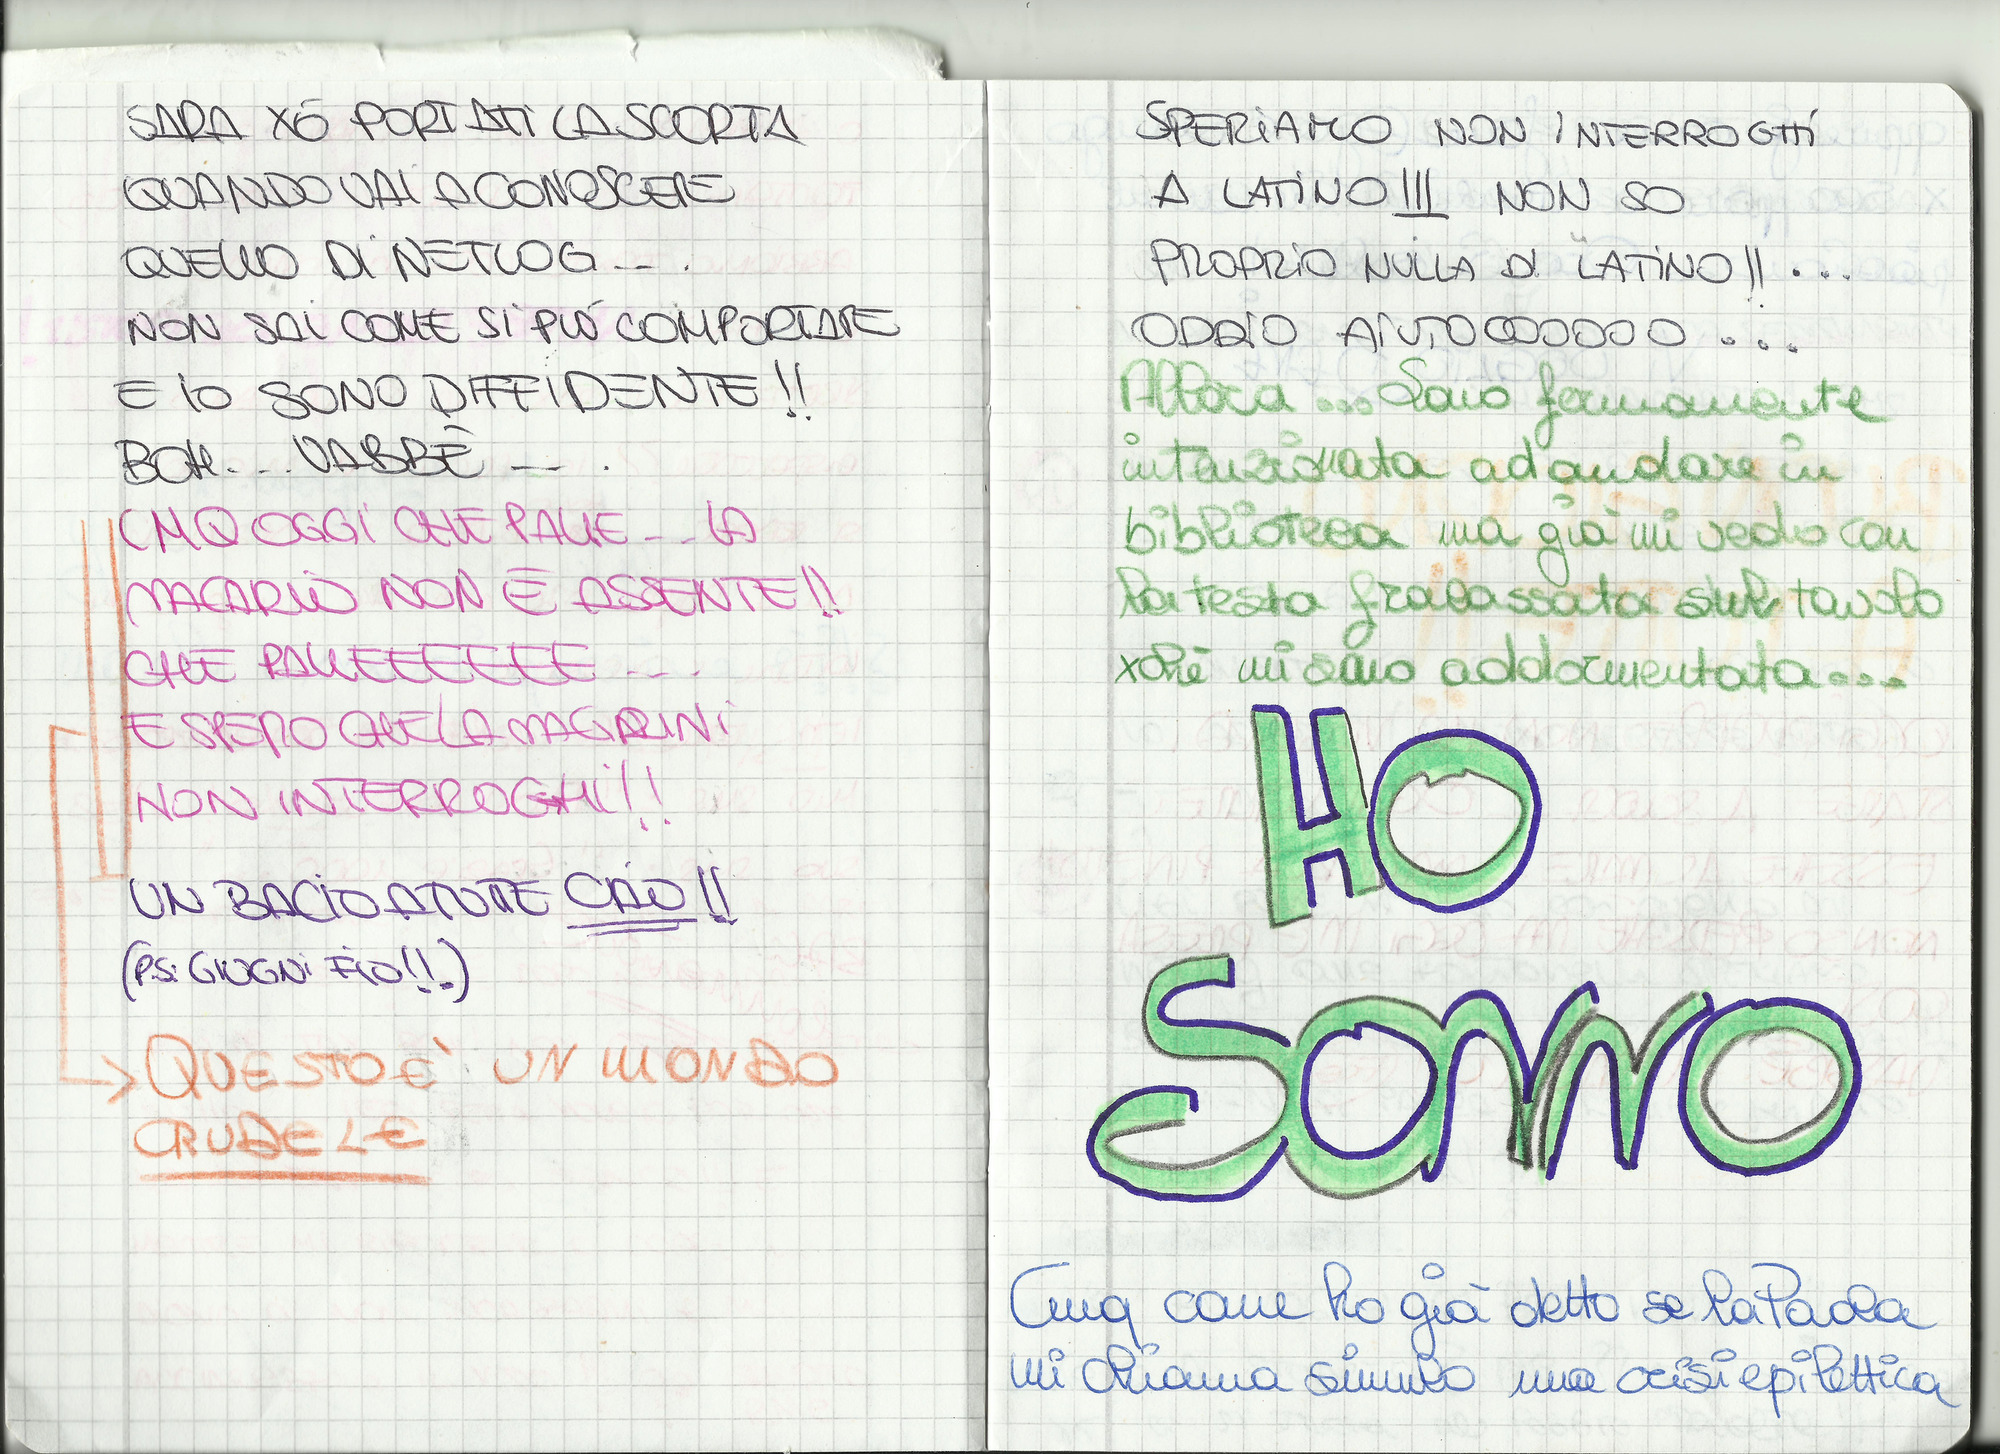 SARA XÓ PORTATI LA SCORTA
QUANDO VAI A CONOSCERE
QUELLO DI NETLOG....
NON SAI COME SI PUÓ COMPORTARE
E IO SONO DIFFIDENTE!!
BOH... VABBÈ ....
CMQ OGGI CHE PALLE... LA
MACARIO NON È ASSENTE!!
CHE PALLEEEEEEE....
E SPERO CHE LA MAGARINI
NON INTERROGHI!!
UN BACIO A TUTTE CIAO!!
(P.S. GIUGNI FIO!!)
QUESTO È UN MONDO
CRUDELE
SPERIAMO NON INTERROGHI
A LATINO!!! NON SO
PROPRIO NULLA DI LATINO!!...
ODDIO AIUTOOOOOO....
Allora ... Sono fermamente
intenzionata ad andare in
biblioteca ma già mi vedo con
la testa fracassata sul tavolo
xché mi sono addormentata....
HO
SONNO
Cmq come ho già detto se la Paola
mi chiama simulo una crisi epilettica